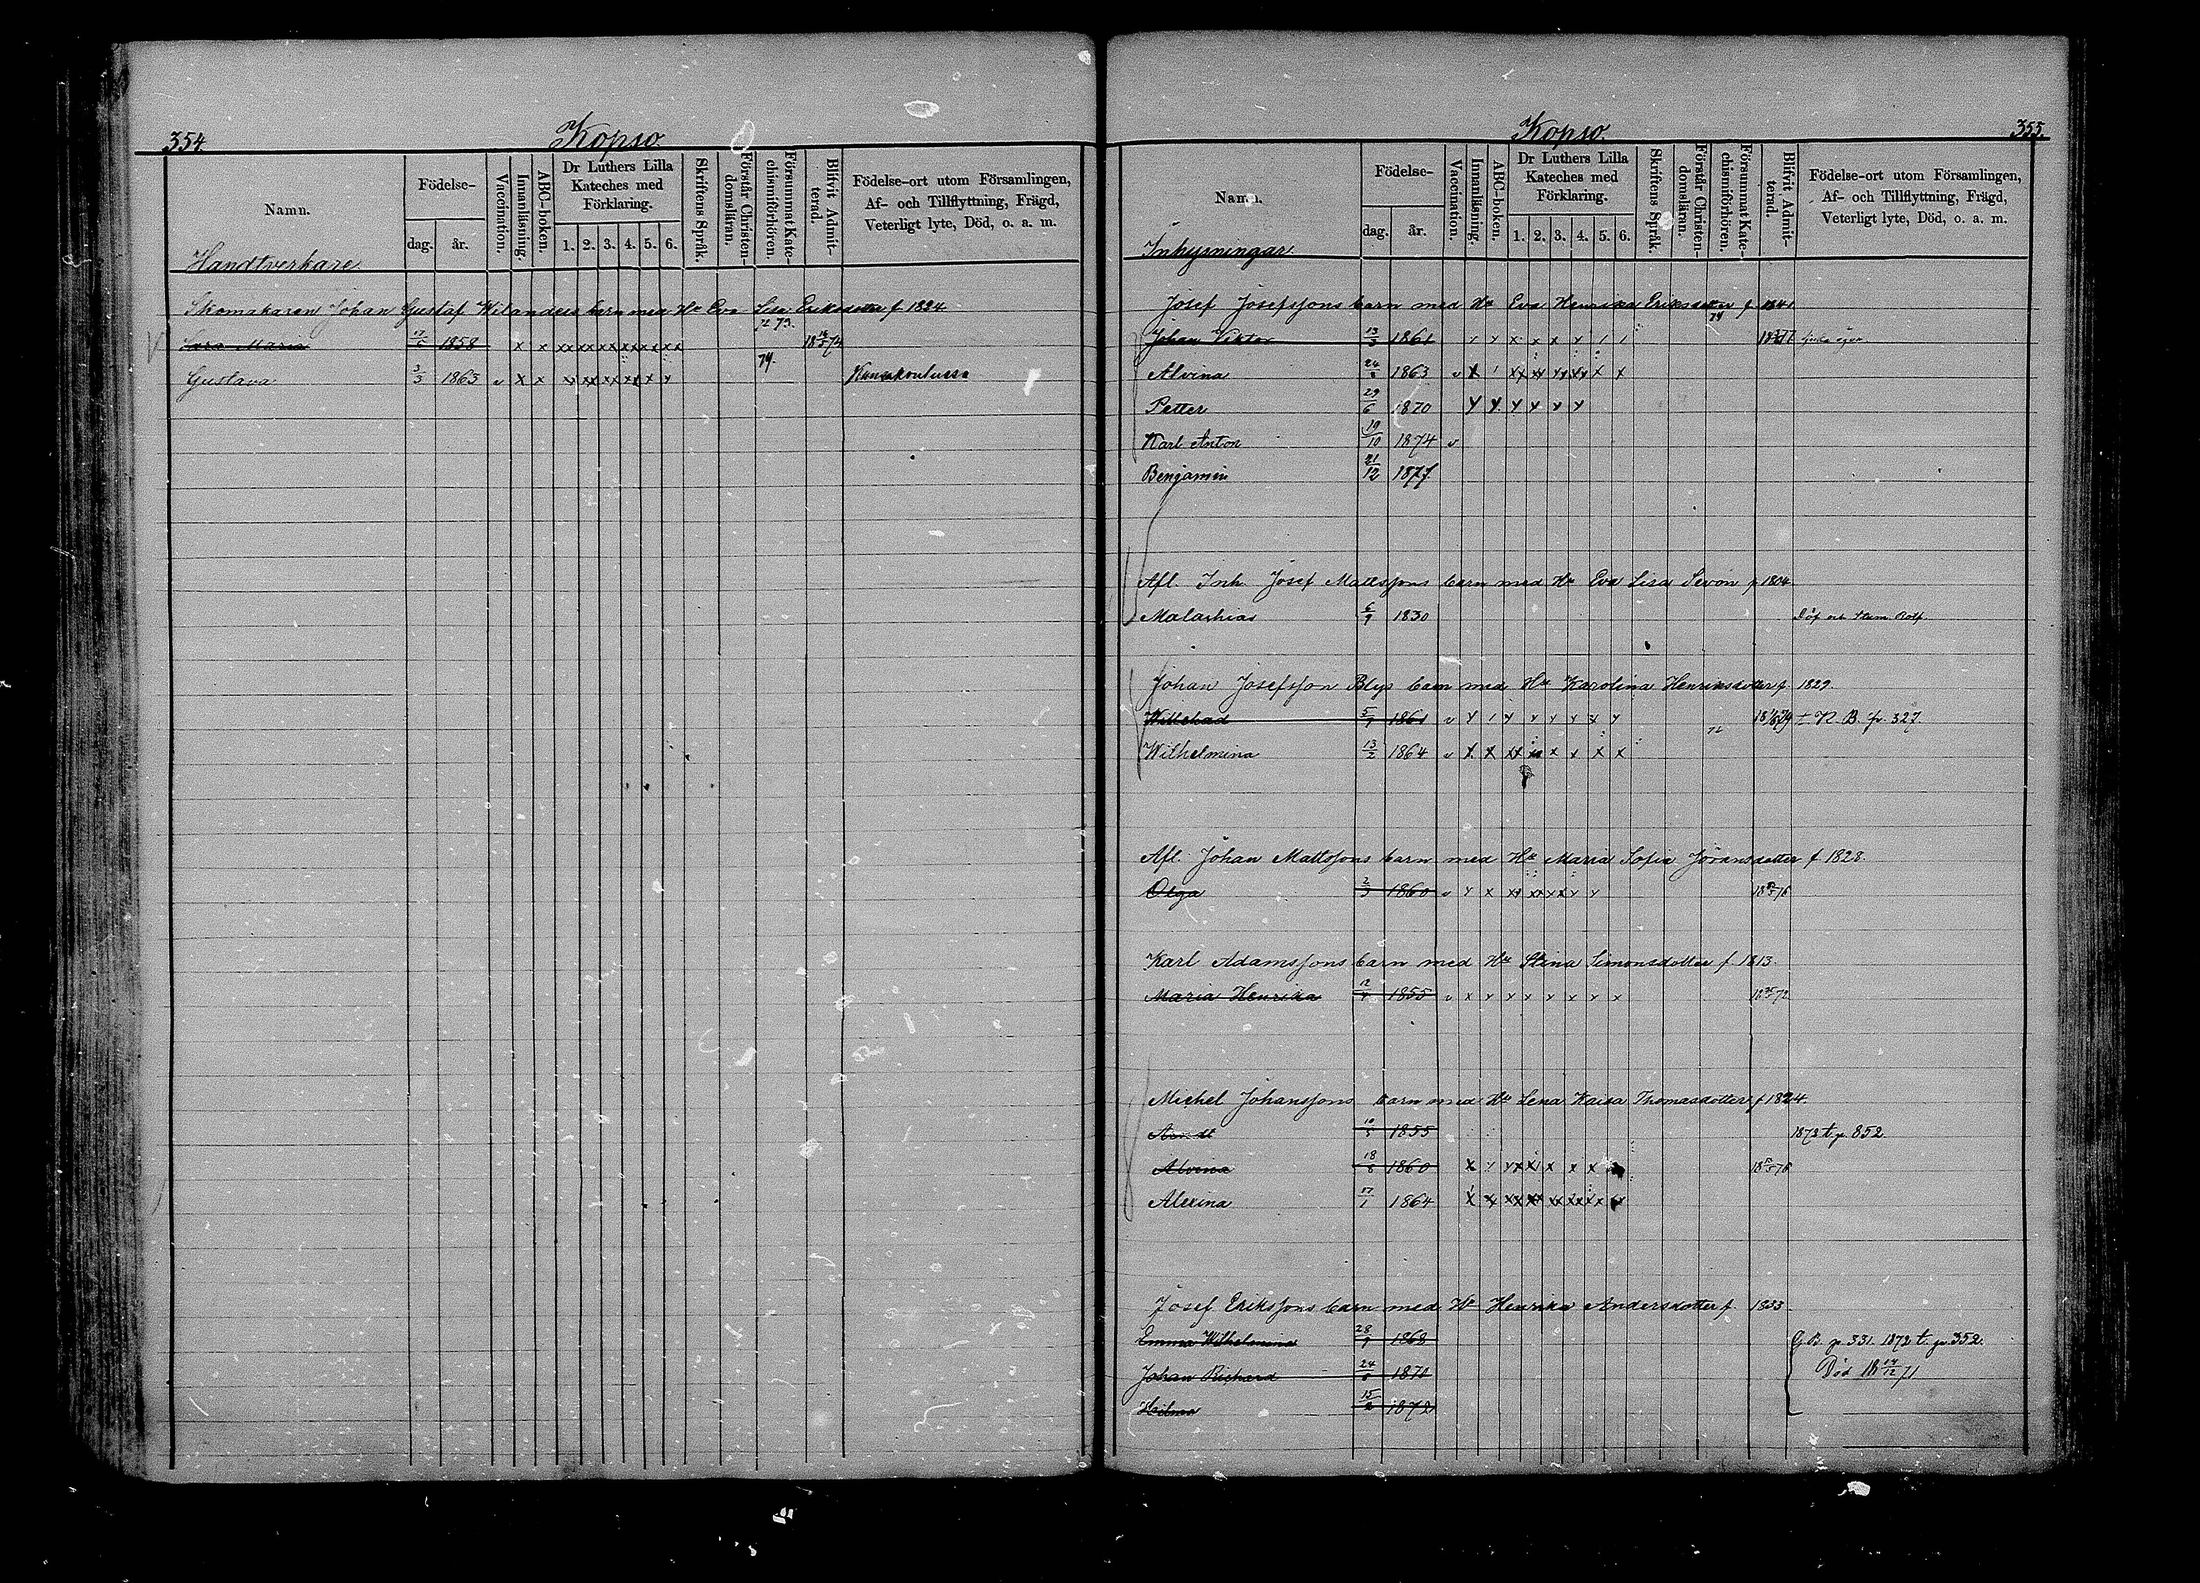 354
Kopso
Namn. Födelse- dag. år. Vaccination. Innanläsning. ABC-boken. Dr Luthers Lilla Kateches med Förklaring. 1. 2. 3. 4. 5. 6. Skriftens Språk. Förstår Christendomsläran. Försummat Katechismiförhören. Blifvit Admitterad. Födelse-ort utom Församlingen, Af- och Tillflyttning, Frägd, Veterligt lyte, Död, o. a. m.
Handtverkare
Skomakaren Johan Gustaf Wilanders barn med Hu Eva Lisa Eriksdotter f 1824
72 73.
Sara Maria 1858 x x xx xx xx xx xx xx
Gustava 3/3 1863 v x x xx xx xx xx x x 74.
355.
Kopso.
Namn. Födelse- dag. år. Vaccination. Innanläsning. ABC-boken. Dr Luthers Lilla Kateches med Förklaring. 1. 2. 3. 4. 5. 6. Skriftens Språk. Förstår Christendomsläran. Försummat Katechismiförhören. Blifvit Admitterad. Födelse-ort utom Församlingen, Af- och Tillflyttning, Frägd, Veterligt lyte, Död, o. a. m.
Inhysningar
Josef Josefssons barn med Hu Eva Henrika Eriksdotter f 1841
Johan Viktor 13/3 1861
Alvina 1863 v x
Petter 29/6 1870 x x x x x x
Karl Anton 19/10 1874 v
Benjamin 21/12 1877
Afl. Inh. Josef Mattssons barn med Hu Eva Lisa Sevon f 1804
Malachias 6/9 1830
Johan Josefsson Blys barn med Hu Karolina Henriksdotter f. 1829.
Willehad 1861 v N. B. p. 327.
Wilhelmina 13/2 1864 v x x xx x x x x
Afl. Johan Mattssons barn med Hu Maria Sofia Jöransdotter f 1828.
Olga 1860 v
Karl Adamssons barn med Hu Stina Simonsdotter f 1813
Maria Henrika 1855 v x x x x x x x x
Michel Johanssons barn med Hu Lena Kaisa Thomasdotter f 1824
1855 1873 t. p. 352
Alvina 1860
Alexina 17/1 1864
Josef Erikssons barn med Hu Henrika Andersdotter f. 1833
Emma Wilhelmina 1868 G. B. p. 331. 1872 t. p. 352.
Johan Richard 1870 Död 18 14/12 71
Hilma 1872